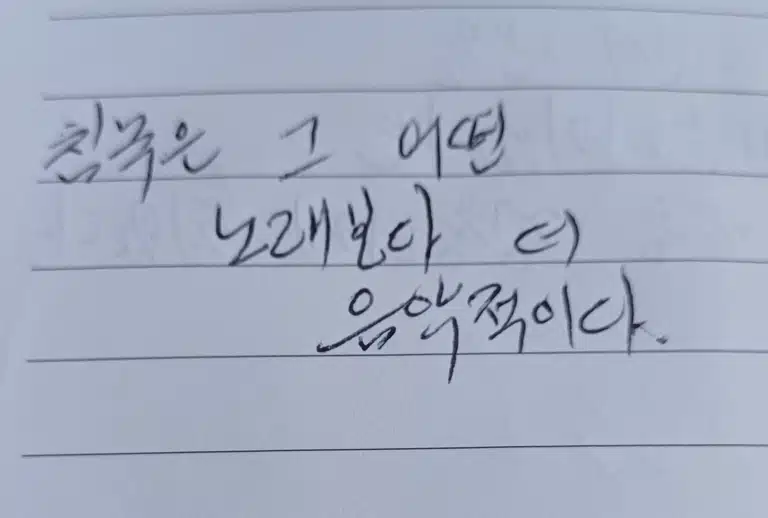 침묵은 그 어떤
노래보다 더
음악적이다.